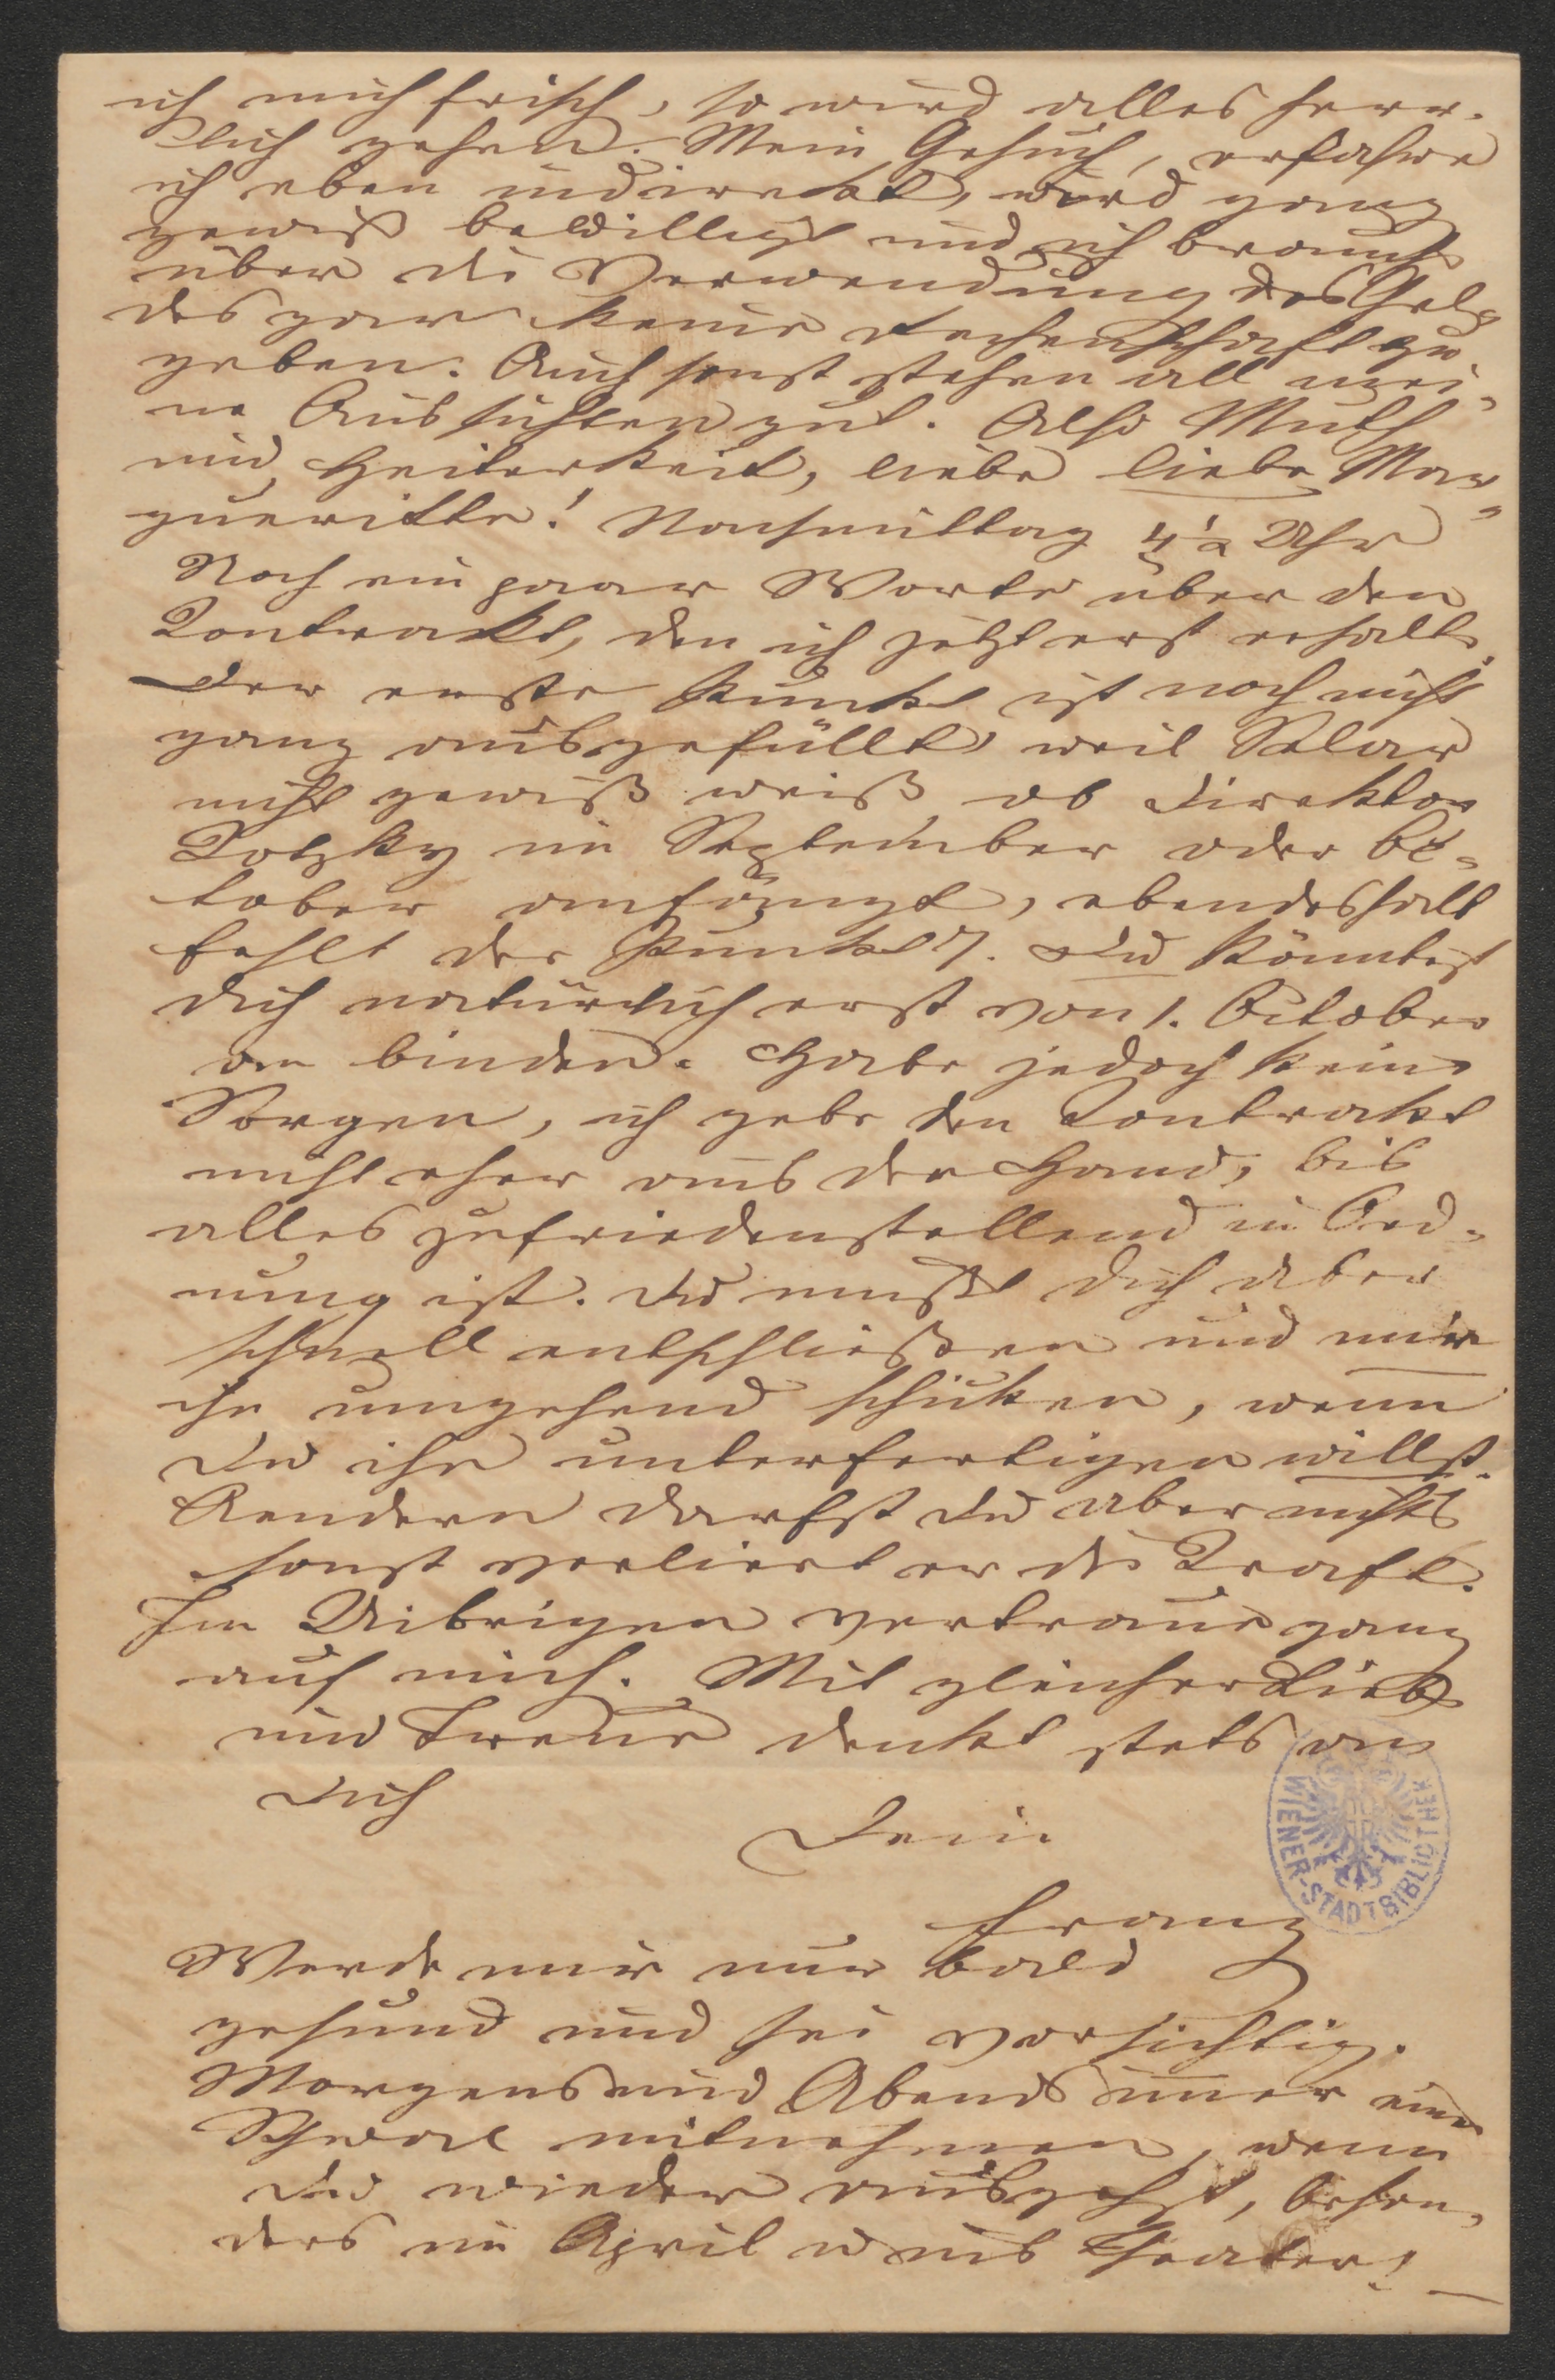 ich mich frisch, so wird alles herr-
lich gehen. Mein Gesuch, erfahre
ich eben indirekt, wird ganz
gewiß bewilligt und ich brauche
über die Verwendung des Gel-
des gar keine Rechenschaft zu
geben. Auch sonst stehen all mei-
ne Aussichten gut. Also Muth
und Heiterkeit, liebe liebe Mar-
gueritte! Nachmittag 4 ½ Uhr
Noch ein paar Worte über den
Contrakt, den ich jetzt erst erhalte.
Der erste Punkt ist noch nicht
ganz ausgefüllt, weil
nicht gewiß weiß, ob Direktor
im September oder Oc-
tober anfängt, ebendeshalb
fehlt der Punkt 7. Du könntest
Dich natürlich erst von 1. October
an binden. Habe jedoch keine
Sorgen, ich gebe den Contrakt
nicht eher aus der Hand, bis
alles zufriedenstellend in Ord-
nung ist. Du mußt Dich aber
schnell entschließen und mir
ihn umgehend schicken, wenn
Du ihn unterfertigen willst.
Aendern darfst Du aber nichts
sonst verliert er die Kraft.
Im Uibrigen vertraue ganz
auf mich. Mit gleicher Liebe
und Treue denkt stets an
Dich
Dein
Franz
Werde mir nur bald
gesund und sei vorsichtig.
Morgens und Abends immer einen
Schwal mitnehmen, wenn
Du wieder ausgehst, beson-
ders im April u ins Theater! —
WIENER-STADTBIBLIOTHEK